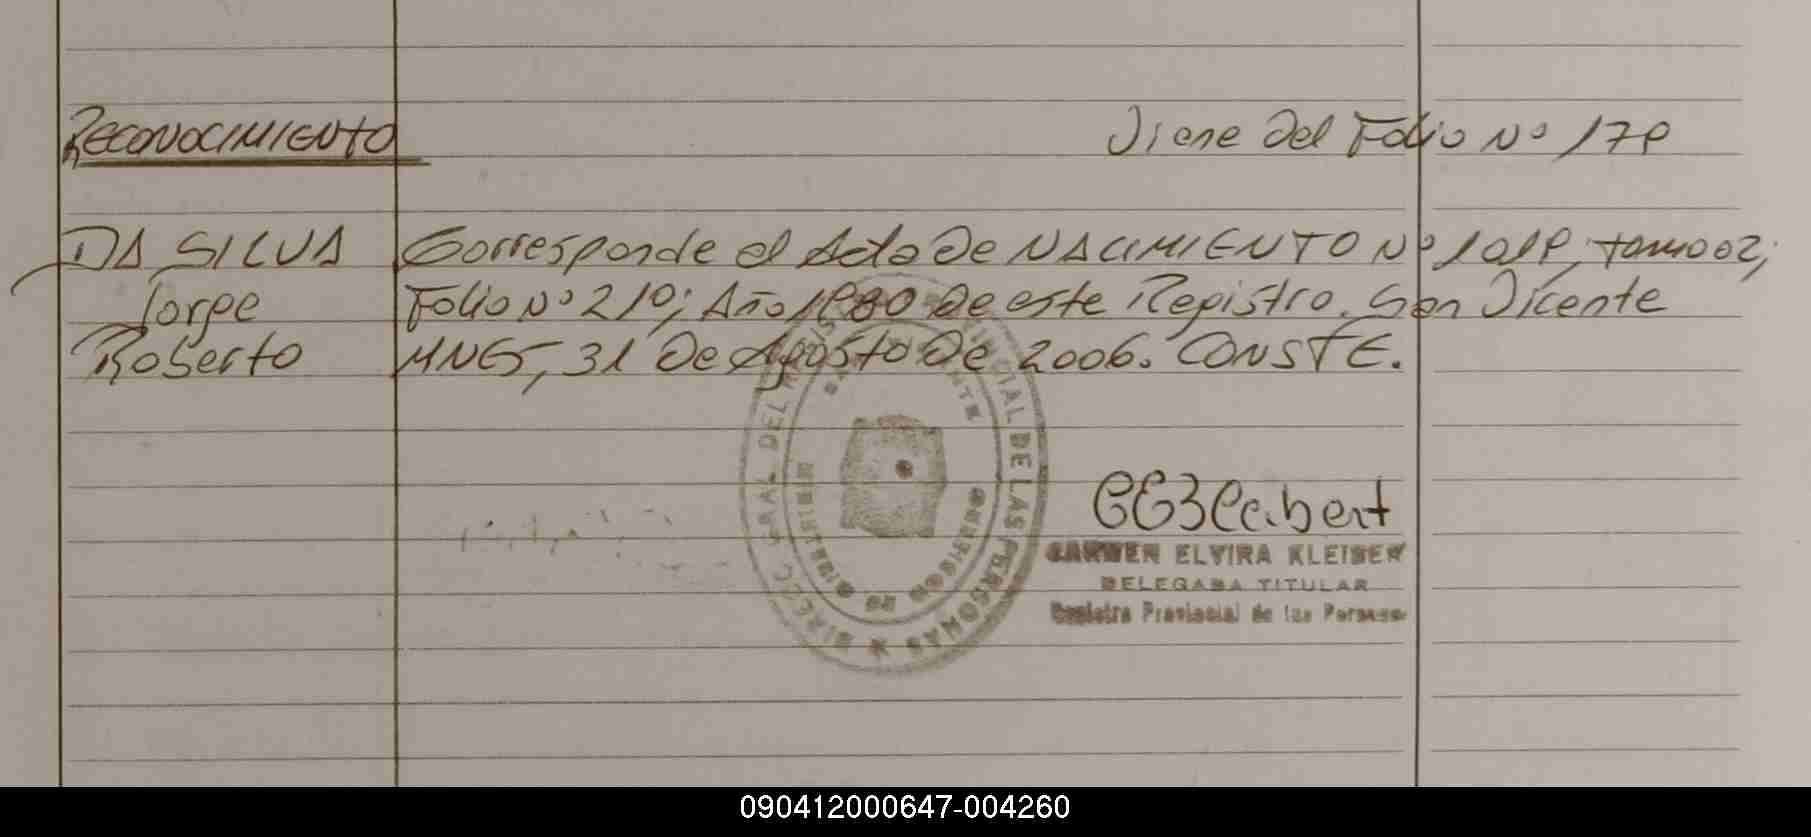 RECONOCIMIENTO
Viene Del Folio Nº 179
DA SILVA Corresponde al Acta De NACIMIENTO Nº 1019, tomo 02;
Jorge Folio Nº 210; Año 1980 De este Registro. San Vicente
Roberto MNES, 31 De Agosto De 2006. CONSTE.
CARMEN ELVIRA KLEIBER
DELEGADA TITULAR
Registro Provincial de las Personas
DIREC. GRAL. DEL REGISTRO PROVINCIAL DE LAS PERSONAS
SAN VICENTE
PROVINCIA DE MISIONES
090412000647-004260